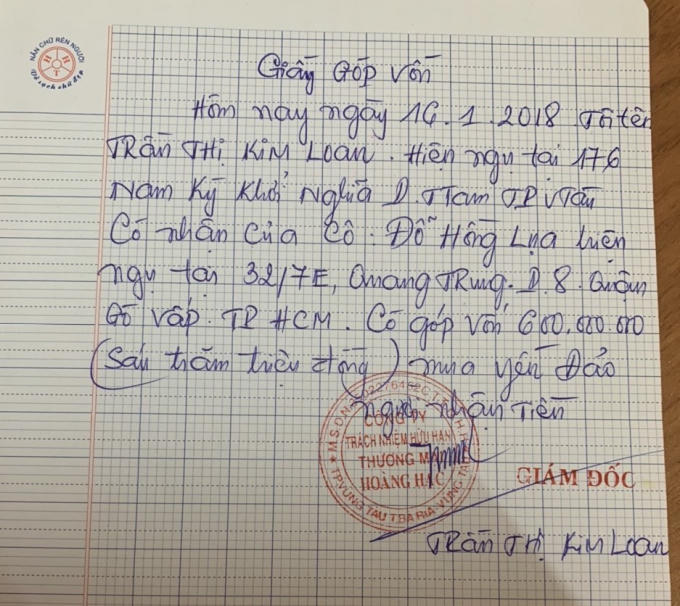 NẮN CHỮ RÈN NGƯỜI
H T
Giấy Góp Vốn
Hôm nay ngày 14.1.2018 Tôi tên
TRẦN THỊ KIM LOAN. Hiện ngụ tại 176
Nam Kỳ Khởi Nghĩa P. TTam TP VTàu
Có nhận của Cô. Đỗ Hồng Lụa hiện
ngụ tại 32/7E, Quang TRung. P. 8. Quận
Gò vấp. TP HCM. Có góp vốn 600.000.000
(Sáu trăm triệu đồng) mua yến Đảo
người nhận Tiền
CÔNG TY
TRÁCH NHIỆM HỮU HẠN
THƯƠNG MẠI
HOÀNG HẠC
TP.VŨNG TÀU T.BÀ RỊA-VŨNG TÀU
GIÁM ĐỐC
TRẦN THỊ KIM LOAN